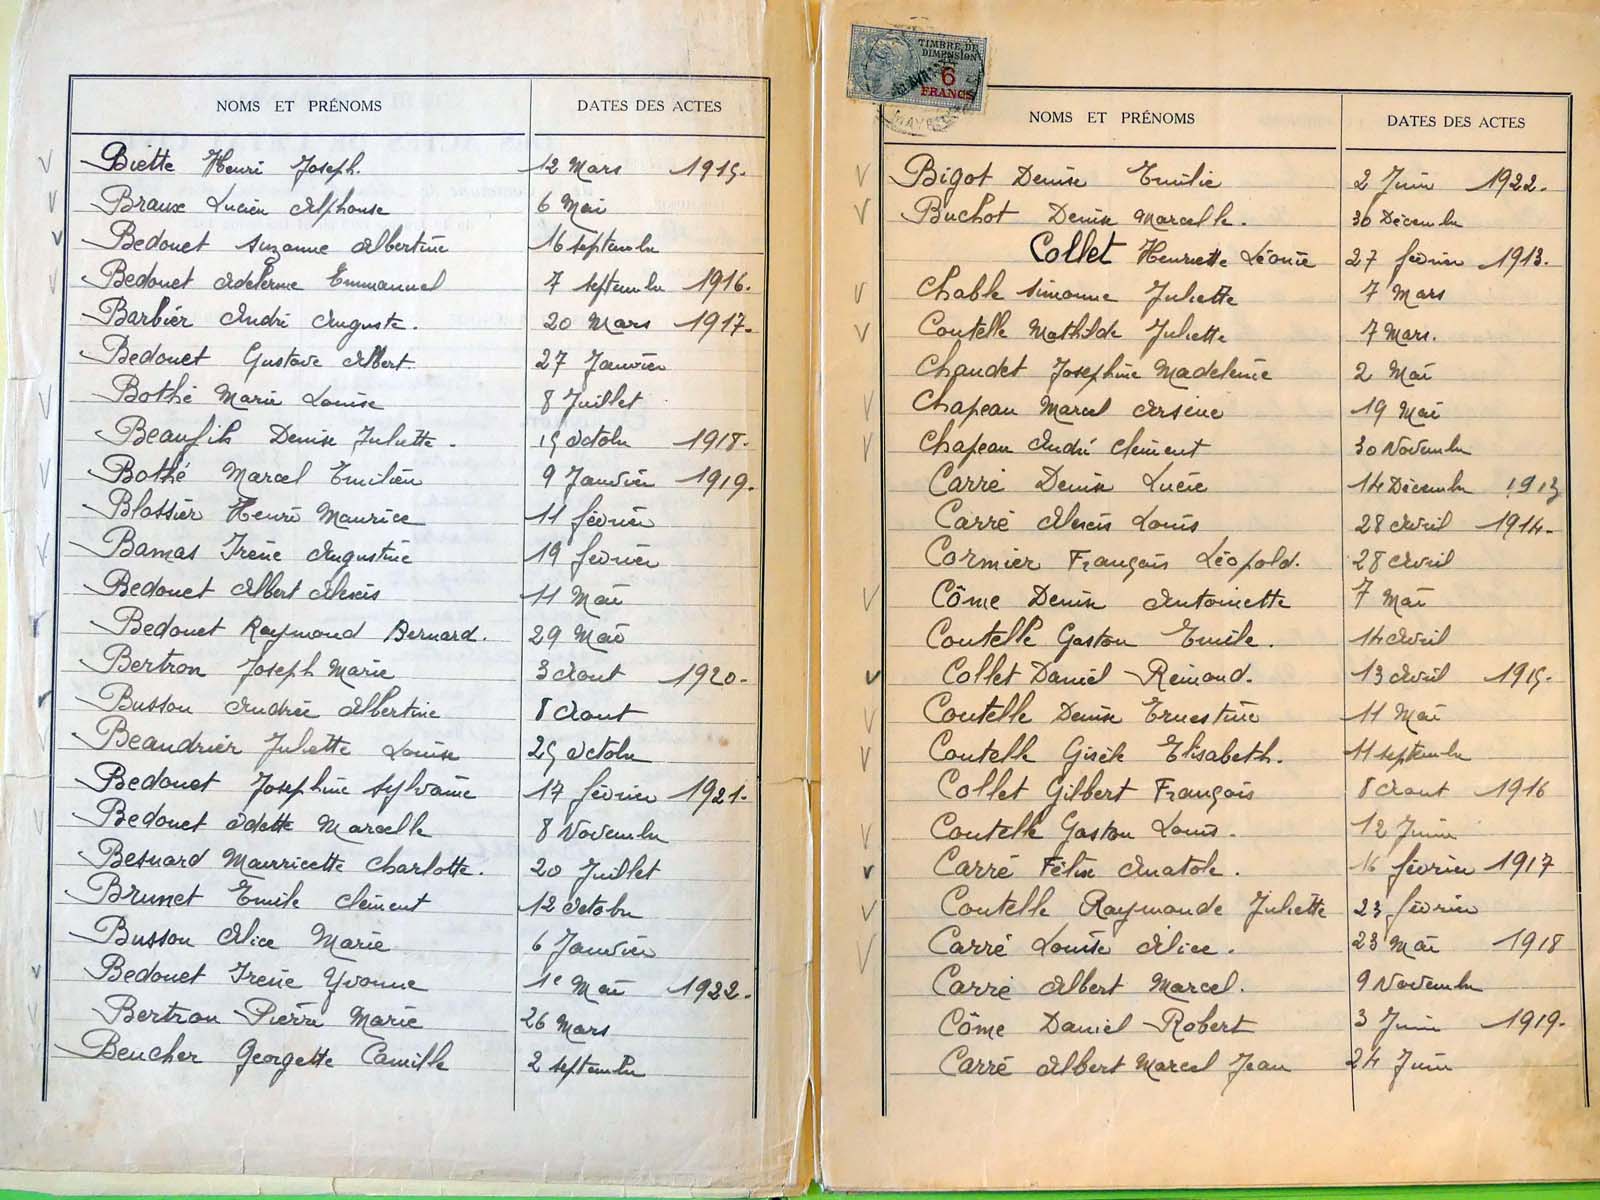 NOMS ET PRÉNOMS DATES DES ACTES
Biette Henri Joseph. 12 Mars 1915.
Braux Lucien Alphonse 6 Mai
Bedouet Suzanne Albertine 16 Septembre
Bedouet Adelerme Emmanuel 7 septembre 1916.
Barbier André Auguste. 20 Mars 1917.
Bedouet Gustave Albert 27 Janvier
Bothé Marie Louise 8 Juillet
Beaufils Denise Juliette. 15 Octobre 1918.
Bothé Marcel Emilien 9 Janvier 1919.
Blossier Henri Maurice 11 février
Bamas Irène Augustine 19 février
Bedouet Albert Alexis 11 Mai
Bedouet Raymond Bernard. 29 Mai
Bertron Joseph Marie 3 Aout 1920.
Busson Andrée Albertine 8 Aout
Beaudrier Juliette Louise 25 Octobre
Bedouet Josephine Sylvaine 17 février 1921.
Bedouet Odette Marcelle 8 Novembre
Besnard Mauricette Charlotte. 20 Juillet
Brunet Emile Clément 12 Octobre
Busson Alice Marie 6 Janvier
Bedouet Irène Yvonne 1e Mai 1922.
Bertron Pierre Marie 26 Mars
Beucher Georgette Camille 2 septembre
TIMBRE DE
DIMENSION
6
FRANCS
NOMS ET PRÉNOMS DATES DES ACTES
Bigot Denise Emilie 2 Juin 1922.
Buchot Denise Marcelle. 30 Décembre
Collet Henriette Léonie 27 février 1913.
Chable Simonne Juliette 7 Mars
Coutelle Mathilde Juliette 7 Mars.
Chaudet Josephine Madeleine 2 Mai
Chapeau Marcel Arsène 19 Mai
Chapeau André Clément 30 Novembre
Carré Denise Lucie 14 Décembre 1913
Carré Alexis Louis 28 Avril 1914.
Cormier François Léopold. 28 Avril
Côme Denise Antoinette 7 Mai
Coutelle Gaston Emile. 14 Avril
Collet Daniel Rémond. 13 Avril 1915.
Coutelle Denise Ernestine 11 Mai
Coutelle Gisèle Elisabeth. 11 septembre
Collet Gilbert François 8 Aout 1916
Coutelle Gaston Louis. 12 Juin
Carré Félix Anatole. 16 février 1917
Coutelle Raymonde Juliette 23 février
Carré Louise Alice. 23 Mai 1918
Carré Albert Marcel. 9 Novembre
Côme Daniel Robert 3 Juin 1919.
Carré Albert Marcel Jean 24 Juin